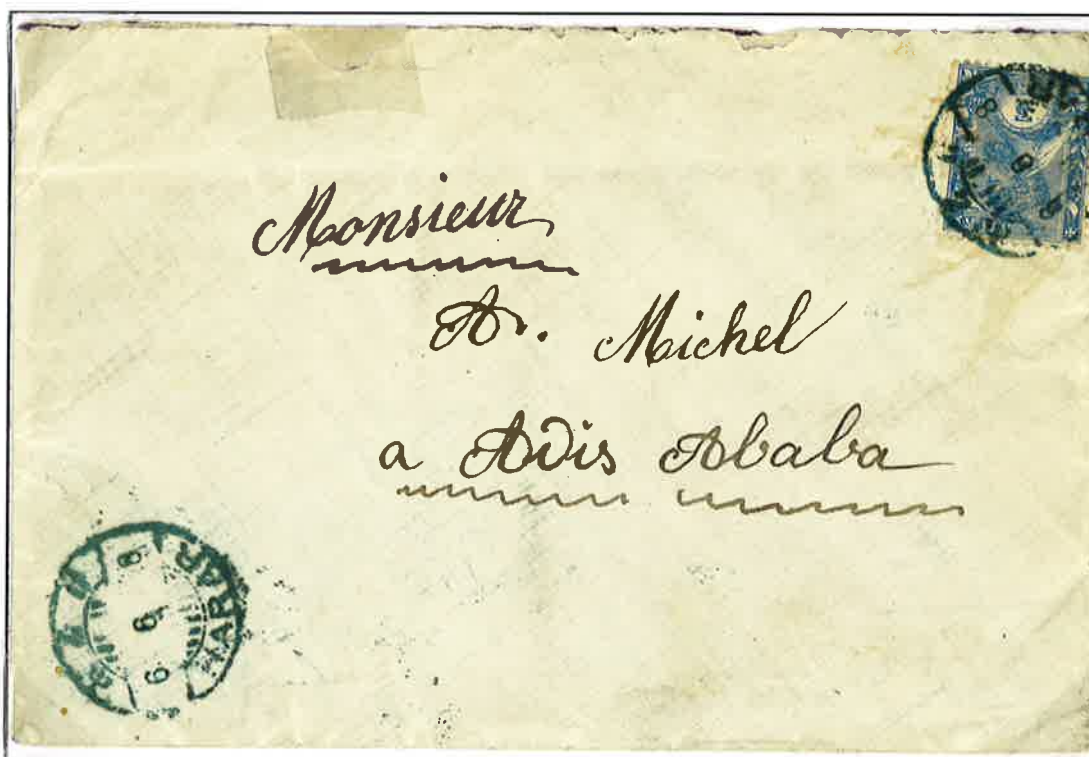 Monsieur
A. Michel
a Adis Ababa
HARAR